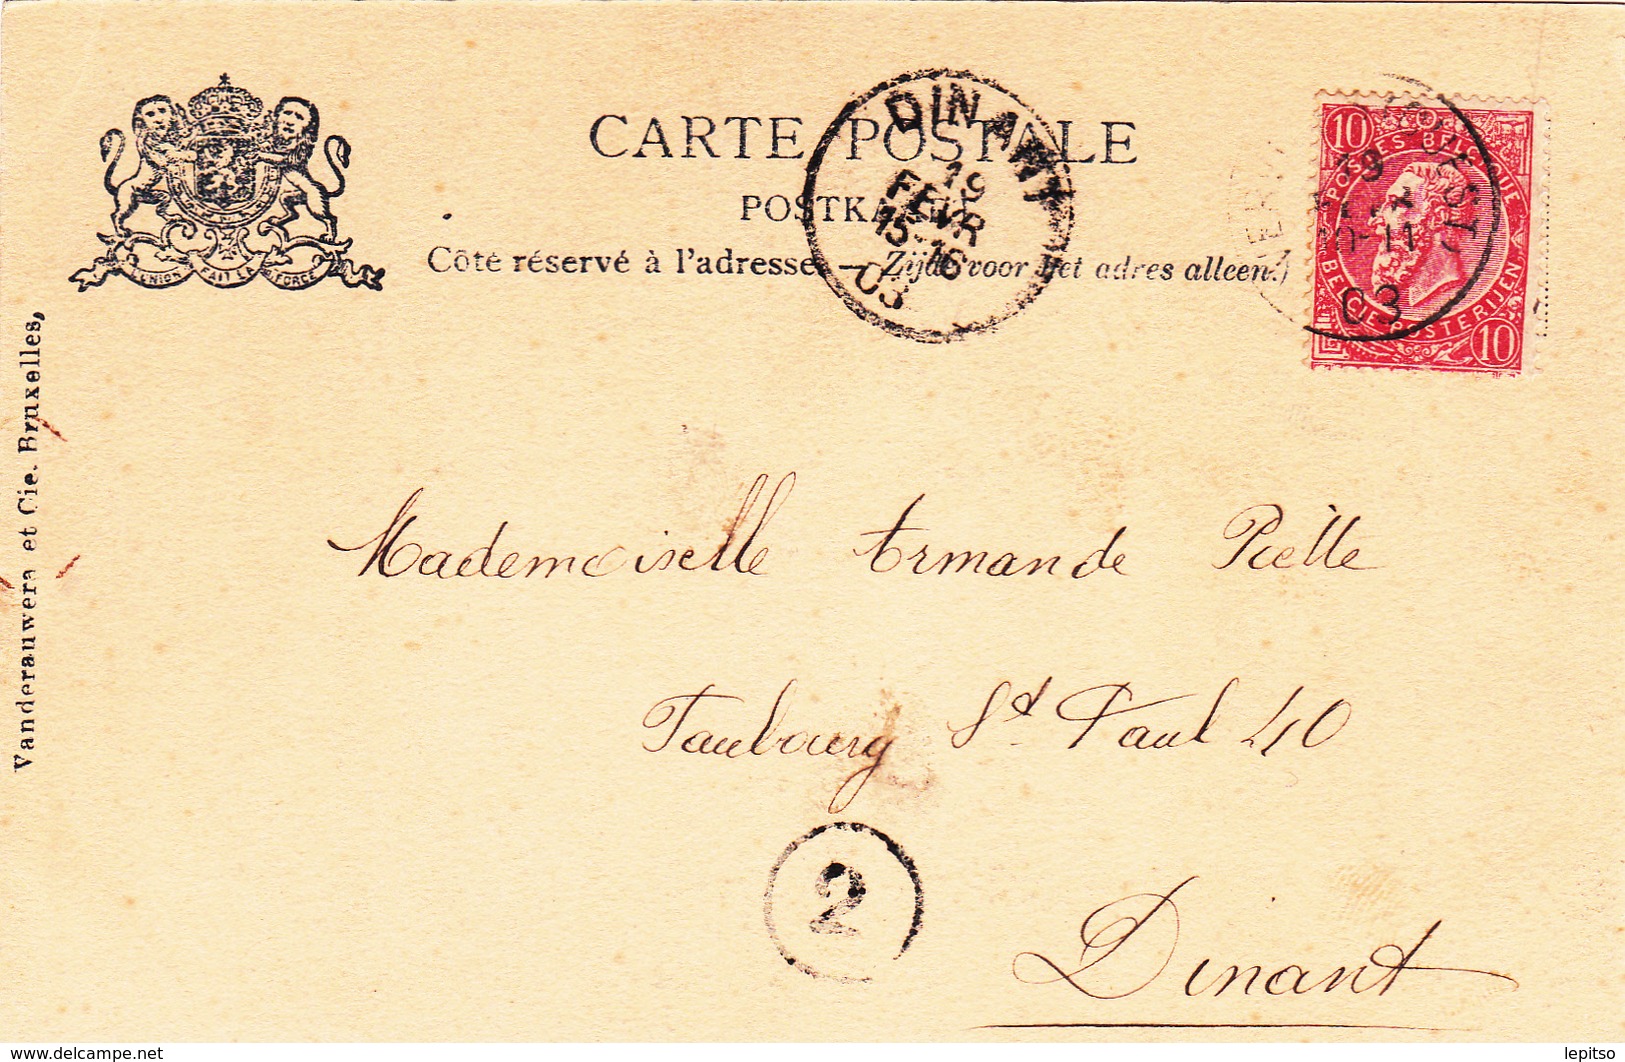 L'UNION FAIT LA FORCE
CARTE POSTALE
Côté réservé à l'adresse. — Zijde voor het adres alleen.
DINANT
19
FEVR
15-16
03
10
POSTES BELGIQUE
BELGIE POSTERIJEN
10
19
10-11
03
Vanderauwera et Cie. Bruxelles,
Mademoiselle Armande Piette
Faubourg St Paul 40
2
Dinant
www.delcampe.net
lepitso